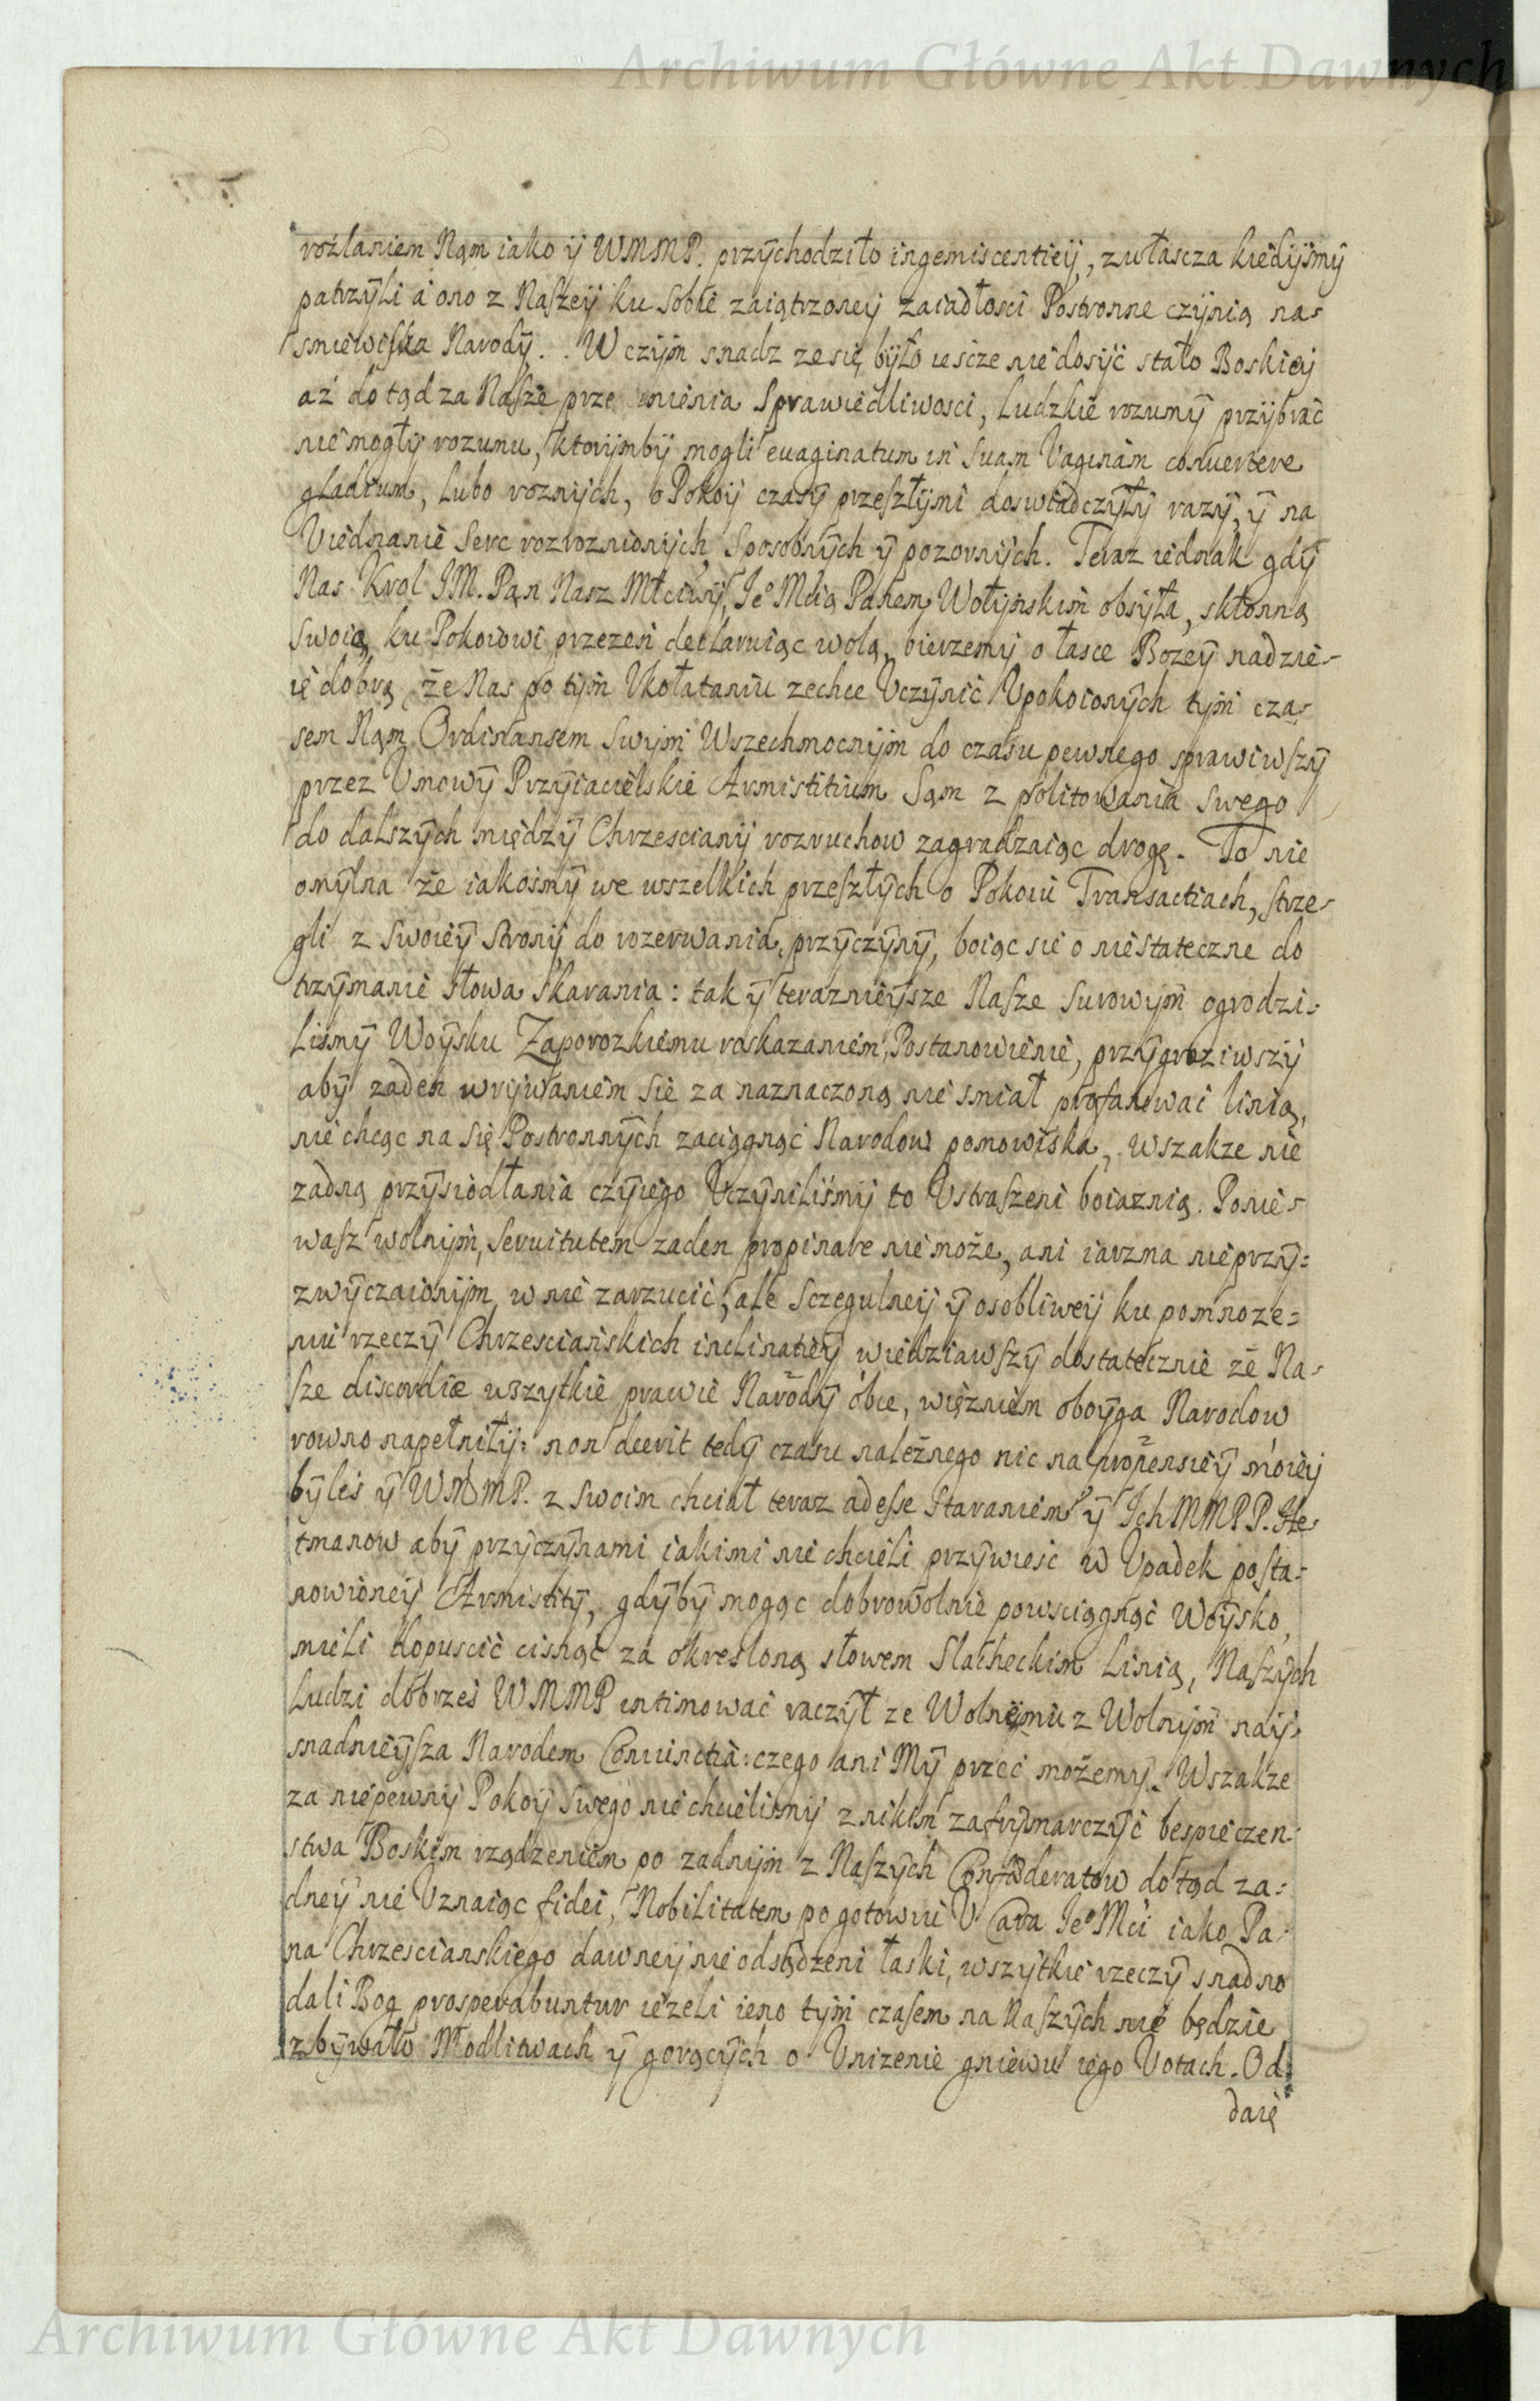 Archiwum Główne Akt Dawnych
rozlaniem Nąm iako ÿ WMMP. przÿchodziło ingemiscentieÿ, zwłascza kiedÿsmÿ
patrzÿli a ono z Naszeÿ ku sobie zaiątrzoneÿ zaiadłosci Postronne czÿnią na-
smiewiska Narodÿ. W czÿm snadz ze się bÿło iescze nie dosÿć stało Boskieÿ
aż do tąd za Nasze sprawiedliwosci, ludzkie rozumÿ przÿbrać
nie mogłÿ rozumu, ktorÿmbÿ mogli euaginatum in suam Vaginam conuertere
gladium, lubo roznÿch, o Pokoÿ czasÿ przeszłÿmi doswiadczÿłÿ razÿ, ÿ na
Viednanie serc rozroznionÿch sposobnÿch ÿ pozornÿch. Teraz iednak gdÿ
Nas Krol JM. Pąn Nasz Młciwÿ, Jeº Mcią Panem Wołÿnskim obsÿła, skłonną
swoią ku Pokoiowi przezeń declaruiąc wolą, bierzemÿ o łasce Bozeÿ nadzie-
ię dobrą, że Nas po tÿm Vkołataniu zechce Vczÿnić Vpokoionÿch tÿm cza-
sem Nąm Ordinansem swÿm Wszechmocnÿm do czasu pewnego sprawiwszÿ
przez Vmowÿ Przÿiacielskie Armistitium sąm z politowania swego
do dalszÿch międzÿ Chrzescianÿ rozruchow zagradzaiąc drogę. To nie
omÿlna że iakosmÿ we wszelkich przeszłÿch o Pokoiu Transactiach, strze-
gli z swoieÿ stronÿ do rozerwania przÿczÿnÿ, boiąc się o niestateczne do
trzÿmanie słowa skarania: tak ÿ terazniejsze Nasze surowÿm ogrodzi-
lismÿ Woÿsku Zaporozkiemu roskazaniem Postanowienie, przÿgroziwszÿ
abÿ zaden wrÿwaniem się za naznaczoną nie smiał profanować linią,
nie chcąc na się Postronnÿch zaciągnąć Narodow pomowiska, wszakze nie
zadną przÿsiodłania czÿiego Vczÿnilismÿ to Vstraszeni boiaznią. Ponie-
wasz wolnÿm, seruitutem zaden propinare nie może, ani iarzma nieprzÿ=
zwÿczaionÿm w nie zarzucić, ale sczegulneÿ ÿ osobliweÿ ku pomnoze=
niu rzeczÿ Chrzesciańskich inclinatieÿ wiedziawszÿ dostatecznie że Na-
sze discordiæ wszytkie prawie Narodÿ obce, więzniem oboÿga Narodow
rowno napełniłÿ: non deerit tedÿ czasu należnego nic na propensieÿ moieÿ
bÿleś ÿ WMMP. z swoim chciał teraz adesse staraniem ÿ Ich MMPP. He-
tmanow abÿ przÿczÿnami iakimi nie chcieli przÿwieść w Vpadek posta-
nowioneÿ Armistitÿ, gdÿbÿ mogąc dobrowolnie powsciągnąć Woÿsko,
mieli dopuscić cisnąć za okresloną słowem Slacheckim linią, Naszÿch
ludzi dobrześ WMMP intimować raczÿł ze Wolnemu z Wolnÿm naÿ-
snadnieÿsza Narodem Coniunctia: czego ani Mÿ przeć możemÿ. Wszakze
za niepewnÿ Pokoÿ swego nie chcielismÿ z nikim zafrÿmarczÿć bespieczen-
stwa Boskim rządzeniem po zadnÿm z Naszÿch Confœderatow do tąd za=
dneÿ nie Vznaiąc fidei, Nobilitatem po gotowiu V Cara Jeº Mci iako Pa-
na Chrzescianskiego dawneÿ nie odsądzeni łaski, wszÿtkie rzeczÿ snadno
da li Bog prosperabuntur ieżeli ieno tÿm czasem na Naszÿch nie będzie
zbÿwało Modlitwach ÿ gorącÿch o Vnizenie gniewu iego Votach. Od-
daię
Archiwum Główne Akt Dawnych